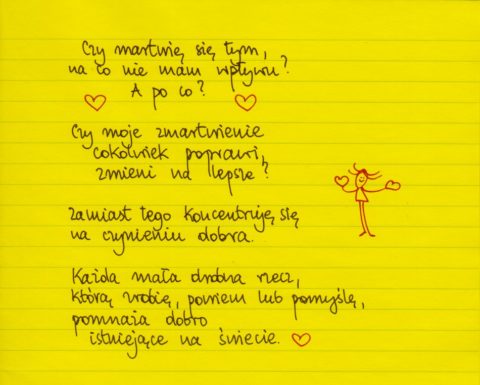 Czy martwię się tym,
na co nie mam wpływu?
A po co?
Czy moje zmartwienie
cokolwiek poprawi,
zmieni na lepsze?
Zamiast tego koncentruję się
na czynieniu dobra.
Każda mała drobna rzecz,
którą zrobię, powiem lub pomyślę,
pomnaża dobro
istniejące na świecie.